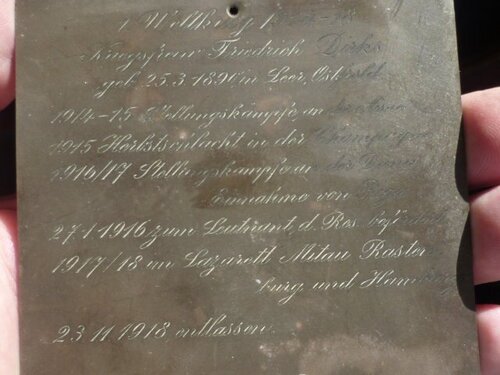 1 Weltkrieg 1914-18
Kriegsfreiw Friedrich Dirks
geb 25.3.1890 in Leer, Ostfrsld.
1914-15 Stellungskämpfe an
1915 Herbstschlacht in der Champagne
1916/17 Stellungskämpfe an der
Einnahme von
27.1.1916 zum Leutnant d. Res. befördert
1917/18 im Lazarett Mitau Rasten
burg und Hamburg
23.11.1918 entlassen.